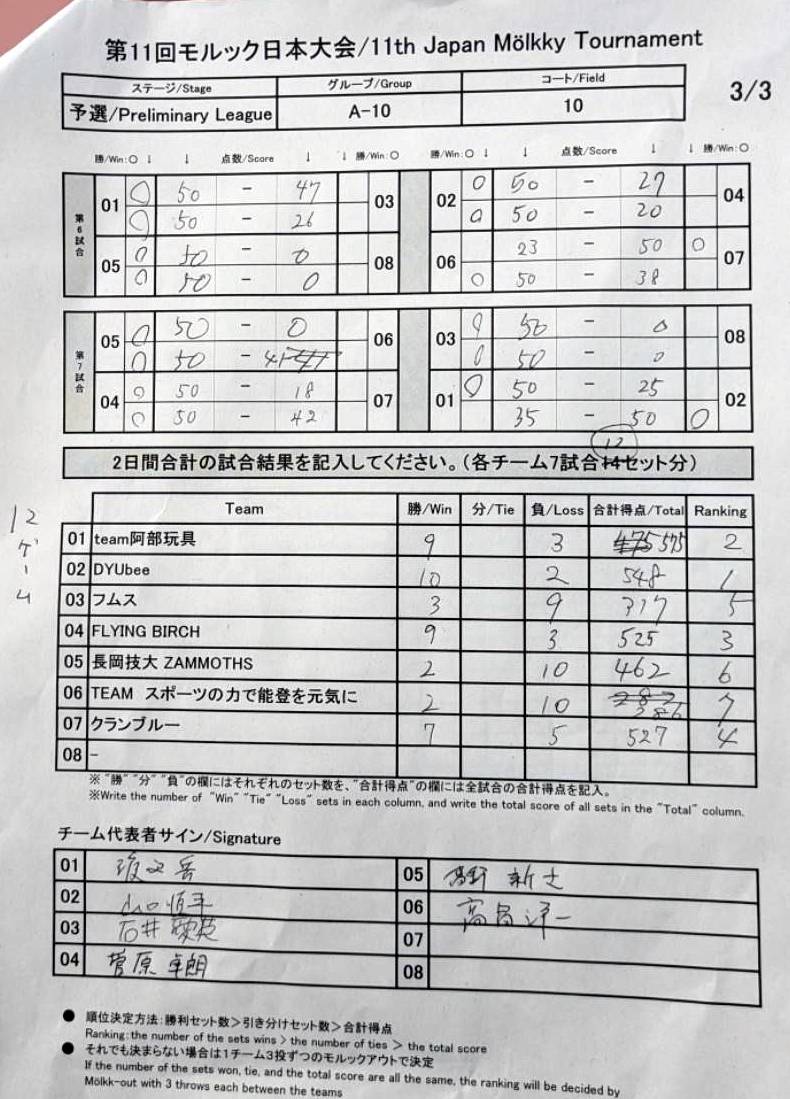 第11回モルック日本大会/11th Japan Mölkky Tournament
ステージ/Stage グループ/Group コート/Field
予選/Preliminary League A-10 10
3/3
勝/Win:○ ↓ ↓ 点数/Score ↓ ↓ 勝/Win:○ 勝/Win:○ ↓ ↓ 点数/Score ↓ ↓ 勝/Win:○
第6試合
01 ○ 50 - 47 03
○ 50 - 26
02 ○ 50 - 27 04
○ 50 - 20
05 ○ 50 - 0 08
○ 50 - 0
06 23 - 50 ○ 07
○ 50 - 38
第7試合
05 ○ 50 - 0 06
○ 50 - 41
03 ○ 50 - 0 08
○ 50 - 0
04 ○ 50 - 18 07
○ 50 - 42
01 ○ 50 - 25 02
35 - 50 ○
12
2日間合計の試合結果を記入してください。(各チーム7試合14セット分)
12ゲーム
Team 勝/Win 分/Tie 負/Loss 合計得点/Total Ranking
01 team阿部玩具 9 3 475 575 2
02 DYUbee 10 2 548 1
03 フムス 3 9 317 5
04 FLYING BIRCH 9 3 525 3
05 長岡技大 ZAMMOTHS 2 10 462 6
06 TEAM スポーツの力で能登を元気に 2 10 386 7
07 クランブルー 7 5 527 4
08 -
※ "勝" "分" "負"の欄にはそれぞれのセット数を、"合計得点"の欄には全試合の合計得点を記入。
※Write the number of "Win" "Tie" "Loss" sets in each column, and write the total score of all sets in the "Total" column.
チーム代表者サイン/Signature
01
02 山口恒平
03 石井
04 菅原卓朗
05 新士
06 高畠洋一
07
08
● 順位決定方法:勝利セット数>引き分けセット数>合計得点
Ranking:the number of the sets wins > the number of ties > the total score
● それでも決まらない場合は1チーム3投ずつのモルックアウトで決定
If the number of the sets won, tie, and the total score are all the same, the ranking will be decided by
Mölkk-out with 3 throws each between the teams